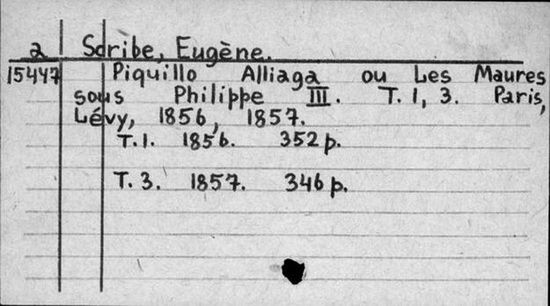 a Scribe, Eugène.
15447 Piquillo Alliaga ou Les Maures
sous Philippe III. T. 1, 3. Paris,
Lévy, 1856, 1857.
T. 1. 1856. 352 p.
T. 3. 1857. 346 p.